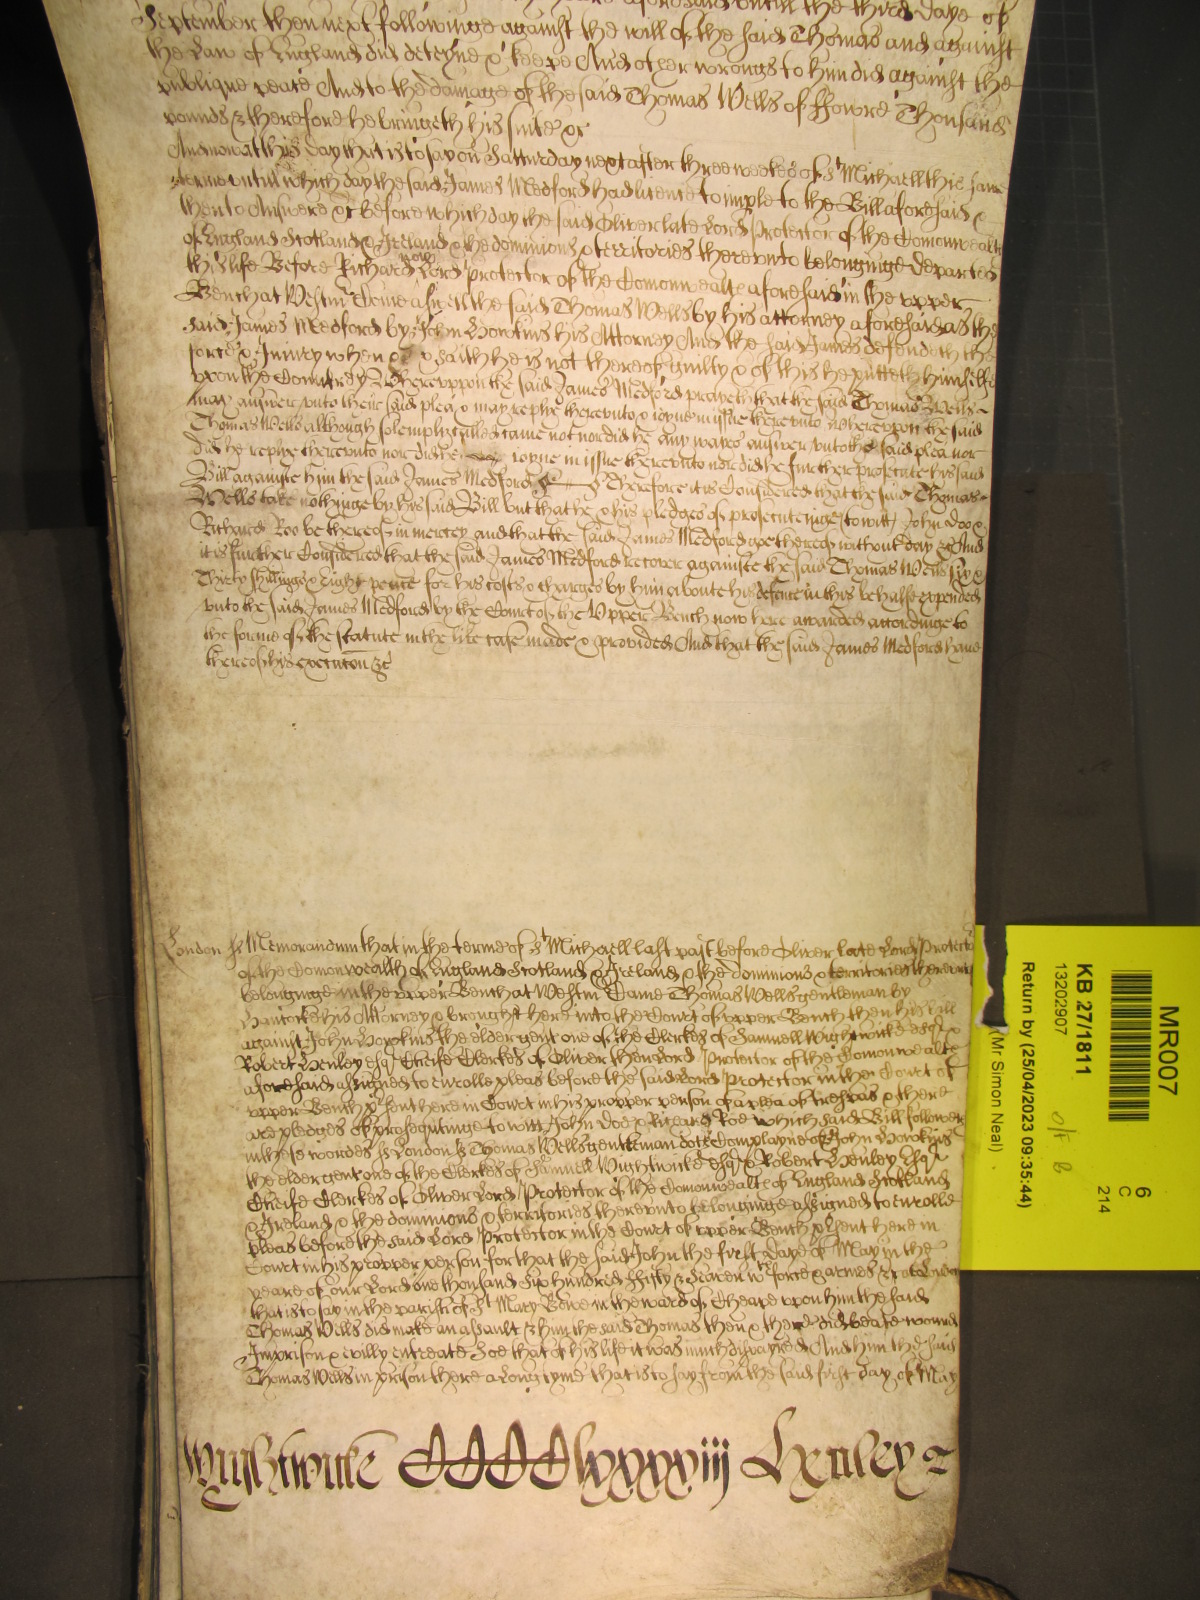 yeare aforesaid untill the third daye of
September then next followinge against the will of the said Thomas and against
the Law of England did deteyne & keepe And other wrongs to him did against the
publique peace And to the damage of the said Thomas Wells of ffower Thousand
pounds & therefore he bringeth his suite &c
And now at this day that is to say on Satturday next after three weekes of St Michaell this same
terme untill which day the said James Medford had licence to imple to the Bill aforesaid &
then to Answere &c Before which day the said Oliver late Lord Protector of the Comonwealth
of England Scotland & Ireland & the dominions & territories thereunto belonginge departed
this life Before Richard now Lord Protector of the Comonwealth aforesaid in the upper
Bench at Westmr Come aswell the said Thomas Wells by his attorney aforesaid as the
said James Medford by John Howkins his Attorney And the said James defendeth the
force & Iniury when &c & saith he is not thereof guilty & of this he putteth himselfe
upon the Countrey Whereuppon the said James Medford prayeth that the said Thomas Wells
may answer unto their said plea & may replye thereunto & ioyne in issue thereunto Whereupon the said
Thomas Wells although solemply called came not nor did he any wayes answer unto the said plea nor
did he replye thereunto nor did he ioyne in issue thereunto nor did he further prosecute his said
Bill againste him the said James Medford &c Therefore it is Considered that the said Thomas
Wells take nothinge by his said Bill but that he & his pledges of prosecuteinge to witt John Doo &
Richard Roo be thereof in mercey and that the said James Medford goe thereof without day &c And
it is further Considered that the said James Medford recover againste the said Thomas Wells six &
Thirty shillings & Eight pence for his costs & charges by him aboute his defence in this behalfe expended
unto the said James Medford by the Court of the Upper Bench now here awarded accordinge to
the forme of the statute in the like case made & provided And that the said James Medford have
thereof his execucon &c
London ss Memorandum that in the terme of St Michaell last past before Oliver late Lord Protector
of the Comonwealth of England Scotland & Ireland & the dominions & territories thereunto
belonginge in the upper Bench at Westmr Came Thomas Wells gentleman by
his Attorney & brought here into the Court of upper Bench then his Bill
against John Howkins the elder gent one of the Clerkes of Samuell Wightwicke Esqr &
Robert Henley Esqr Cheife Clerkes of Oliver then Lord Protector of the Comonwealth
aforesaid assigned to enrolle pleas before the said Lord Protector in the Court of
upper Bench &c psent here in Court in his propper person of a plea of trespas & there
are pledges of prosequtinge to witt John Doo & Richard Roe which said Bill followeth
in these woordes ss London ss Thomas Wells gentleman doth Complayne of John Howkins
the elder gent one of the Clerkes of Samuell Wightwicke Esqr & Robert Henley Esqr
Cheife Clerkes of Oliver Lord Protector of the Comonwealth of England Scotland
& Ireland & the dominions & territories thereunto belonginge assigned to enrolle
pleas before the said Lord Protector in the Court of upper Bench &c psent here in
Court in his propper person for that the said John the first daye of May in the
yeare of our Lord one thousand Six hundred fifty & Seaven wth force & armes &c att London
that is to say in the parish of St Mary Bowe in the ward of Cheape upon him the said
Thomas Wells did make an assault & him the said Thomas then & there did beate wound
Imprison & evilly entreate Soe that of his life it was much dispayred And him the said
Thomas Wells in prison there a long tyme that is to say from the said first day of May
Wightwicke CCCClxxxxiij Henley
MR007
6
C
214
KB 27/1811
13202907
o/t b
Return by (25/04/2023 09:35:44)
(Mr Simon Neal)